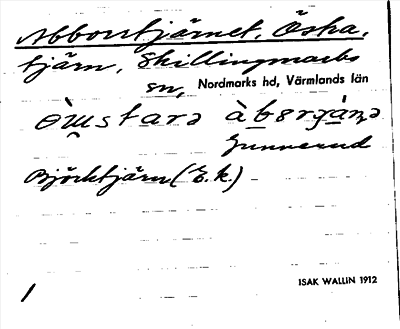 Abborrtjärnet, Östra,
tjärn, Skillingmarks
sn, Nordmarks hd, Värmlands län
Gunnerud
Björktjärn (E.k.)
1
ISAK WALLIN 1912